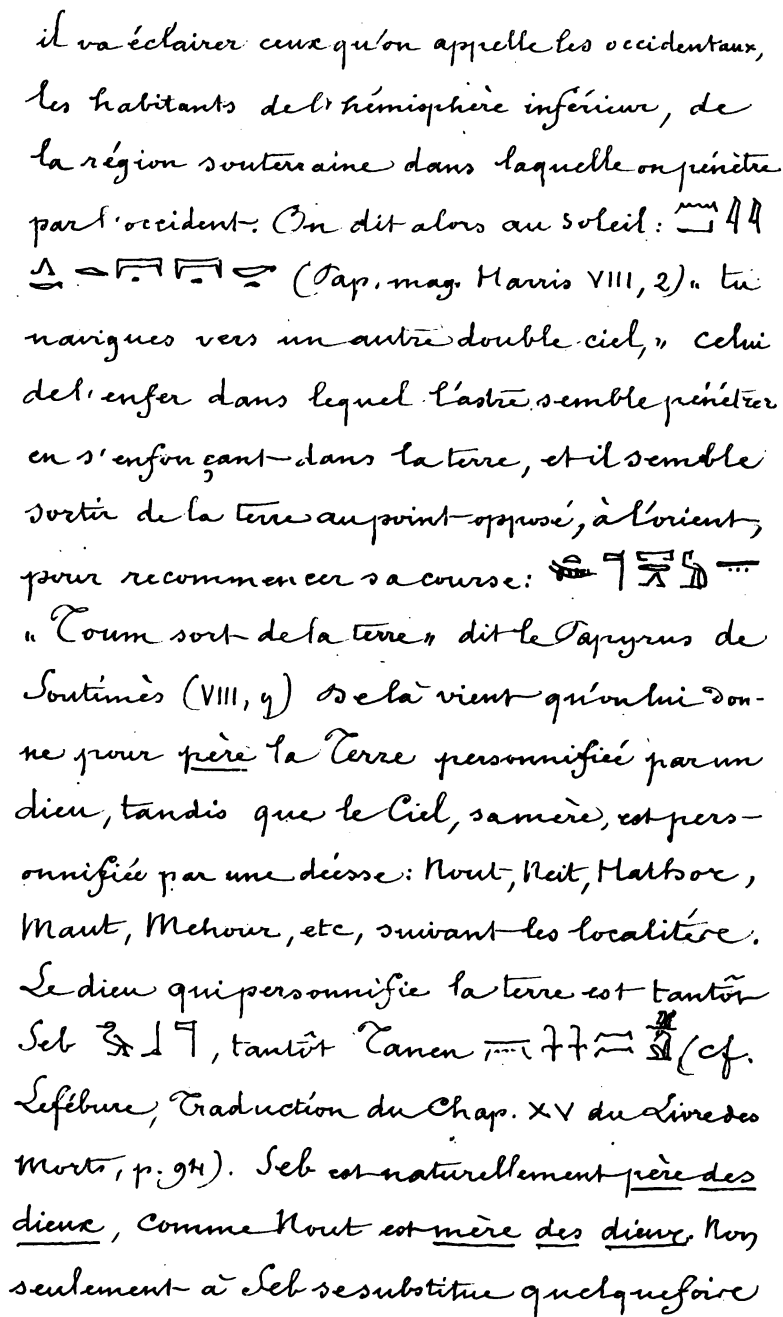 il va éclairer ceux qu'on appelle les occidentaux,
les habitants de l'hémisphère inférieur, de
la région souterraine dans laquelle on pénètre
par l'occident. On dit alors au soleil :
(Pap. mag. Harris VIII, 2) „ tu
navigues vers un autre double ciel, „ celui
de l'enfer dans lequel l'astre semble pénétrer
en s'enfonçant dans la terre, et il semble
sortir de la terre au point opposé, à l'orient,
pour recommencer sa course :
„ Toum sort de la terre „ dit le Papyrus de
Soutimès (VIII, 9) De là vient qu'on lui don-
ne pour père la Terre personnifiée par un
dieu, tandis que le Ciel, sa mère, est pers-
onnifiée par une déesse : Nout, Neit, Hathor,
Maut, Mehour, etc, suivant les localités.
Le dieu qui personnifie la terre est tantôt
Seb , tantôt Tanen (cf.
Lefébure, Traduction du Chap. XV du Livre des
Morts, p. 94). Seb est naturellement père des
dieux, comme Nout est mère des dieux. Non
seulement à Seb se substitue quelquefois